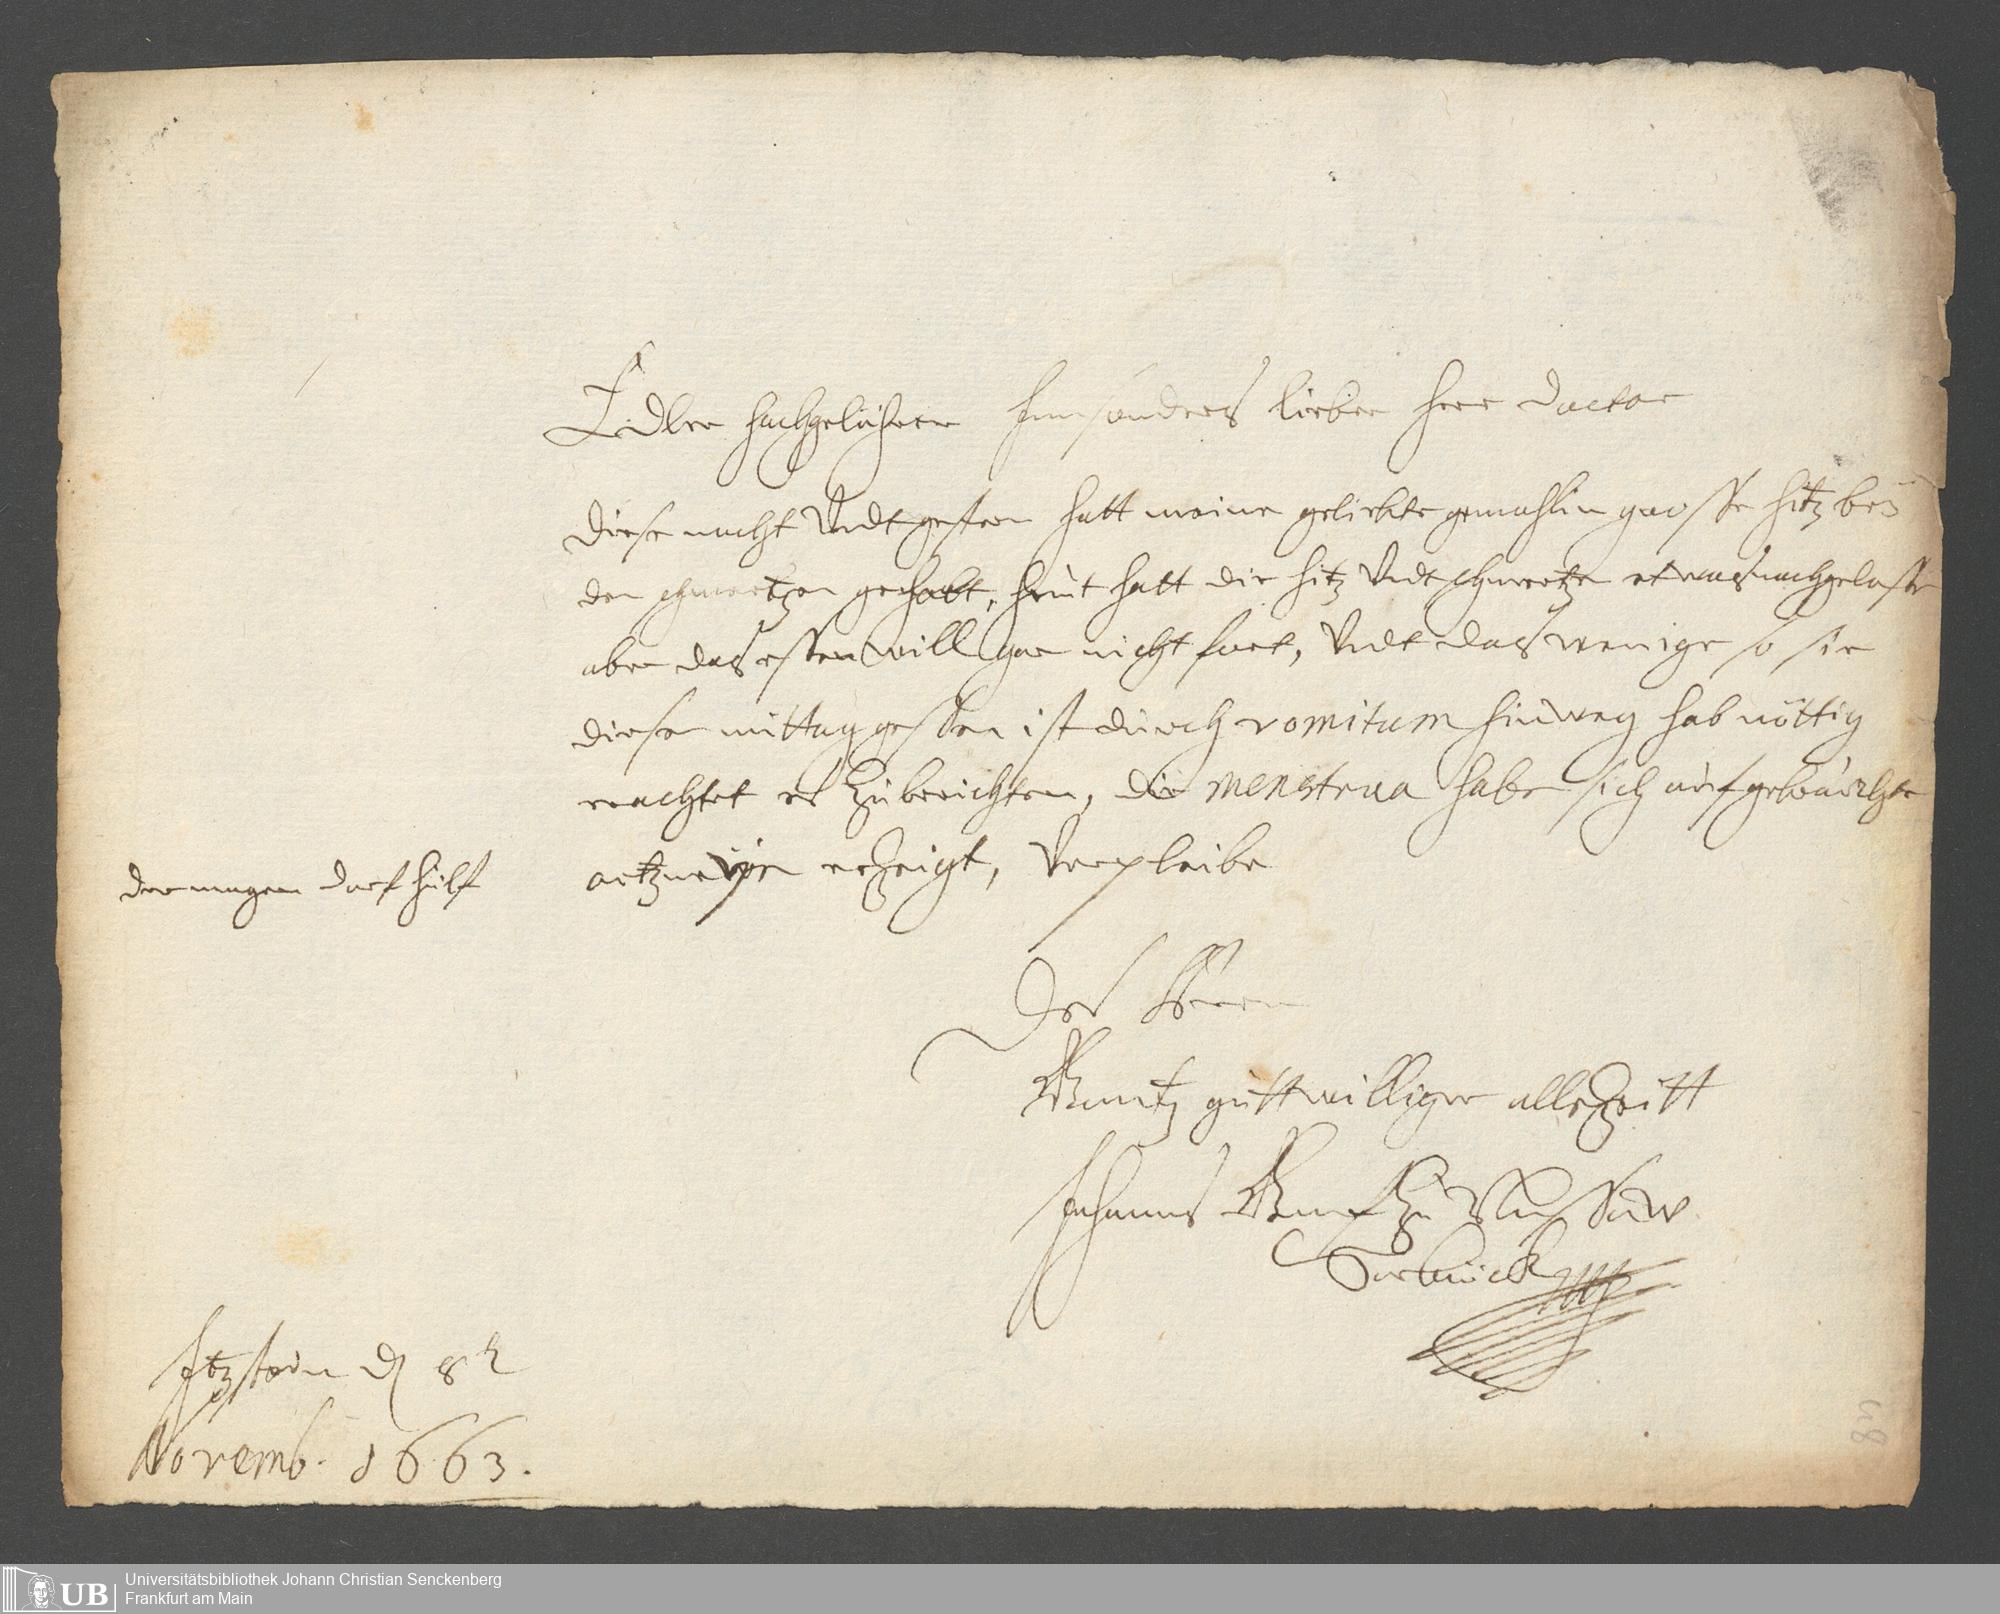 Edler hochgelährter Jnnsonders lieber Herr Doctor
diese nacht Vndt gestern hatt meine geliebte gemahlin grosse hitz beÿ
den schmertzen gehabt, heut hatt die hitz Vndt schmertze etwas nachgelasse
aber das essen will gar nicht fort, Vndt das wenige so sie
diesen mittag gessen ist durch vomitum hinweg hab nöttig
erachtet es Zu berichten, die menstrua habe sich auf gebrauchte
artzneÿen erZeigt, Verpleibe
der magen darf hülf
Des Herrn
Gantz guttwilliger alleZeitt
Johanns Graf Zu Nassaw
Sarbrück mp
Jtzstein d 8t
Novemb. 1663.
48
UB
Universitätsbibliothek Johann Christian Senckenberg
Frankfurt am Main